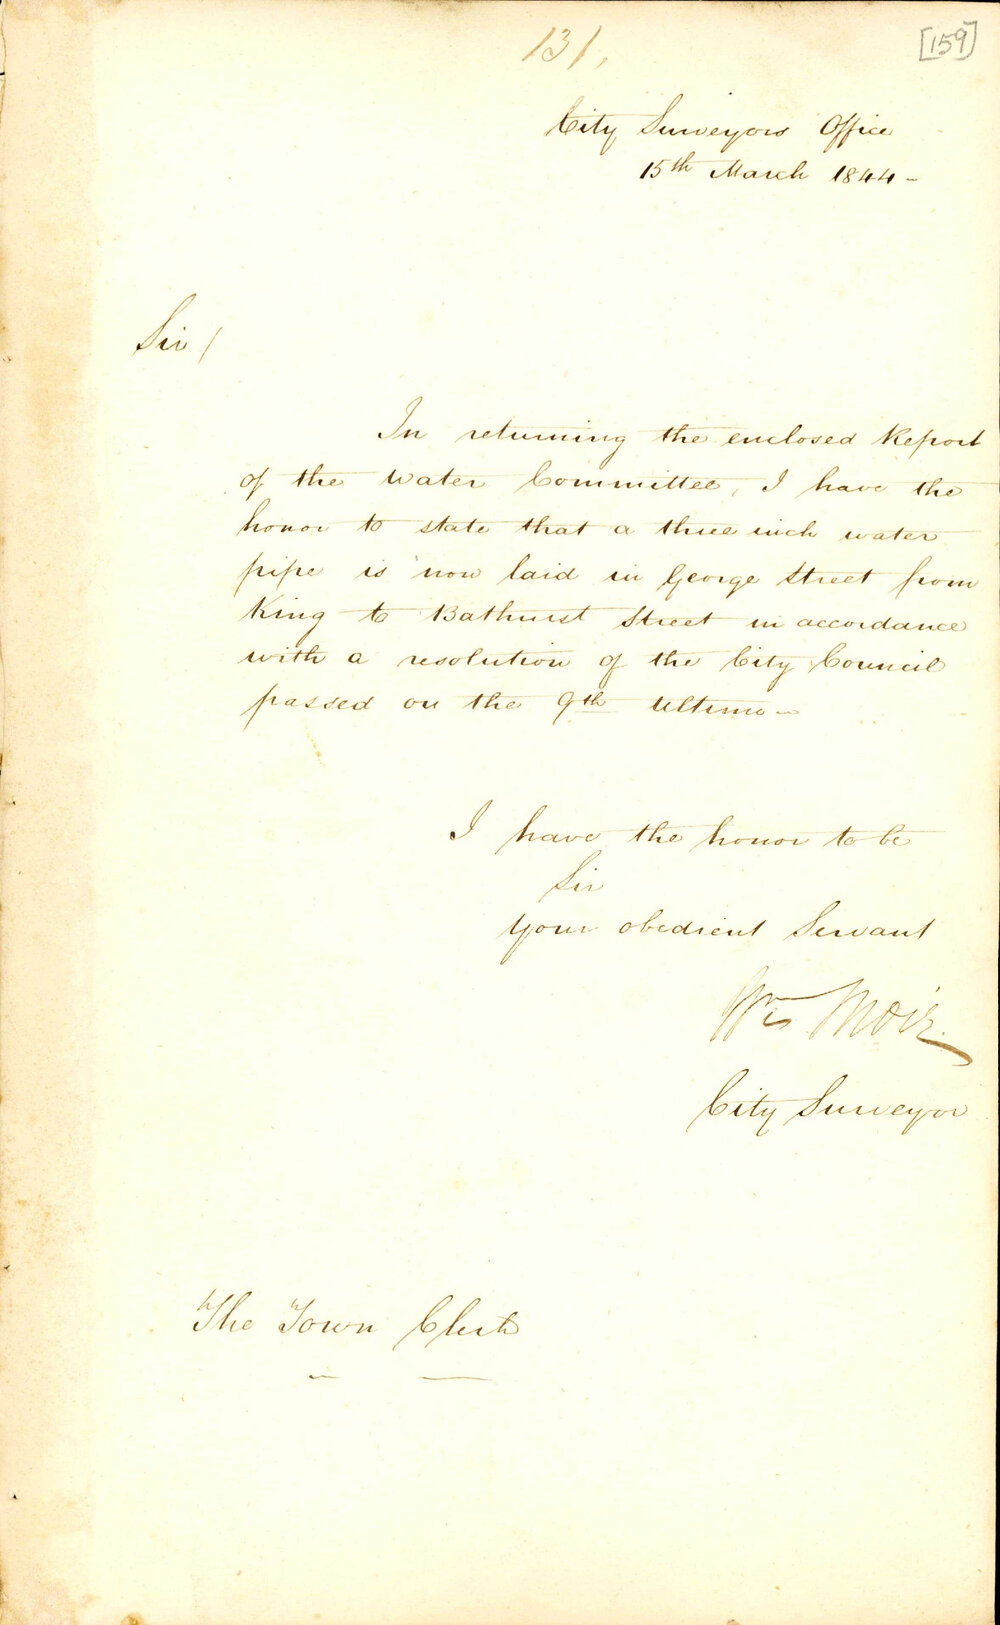 131,
[159]
City Surveyors Office
15th March 1844 -
Sir /
In returning the enclosed Report
of the Water Committee, I have the
honor to state that a three inch water
pipe is now laid in George Street from
King to Bathurst Street in accordance
with a resolution of the City Council
passed on the 9th Ultimo -
I have the honor to be
Sir
Your obedient Servant
Wm Moir
City Surveyor
The Town Clerk